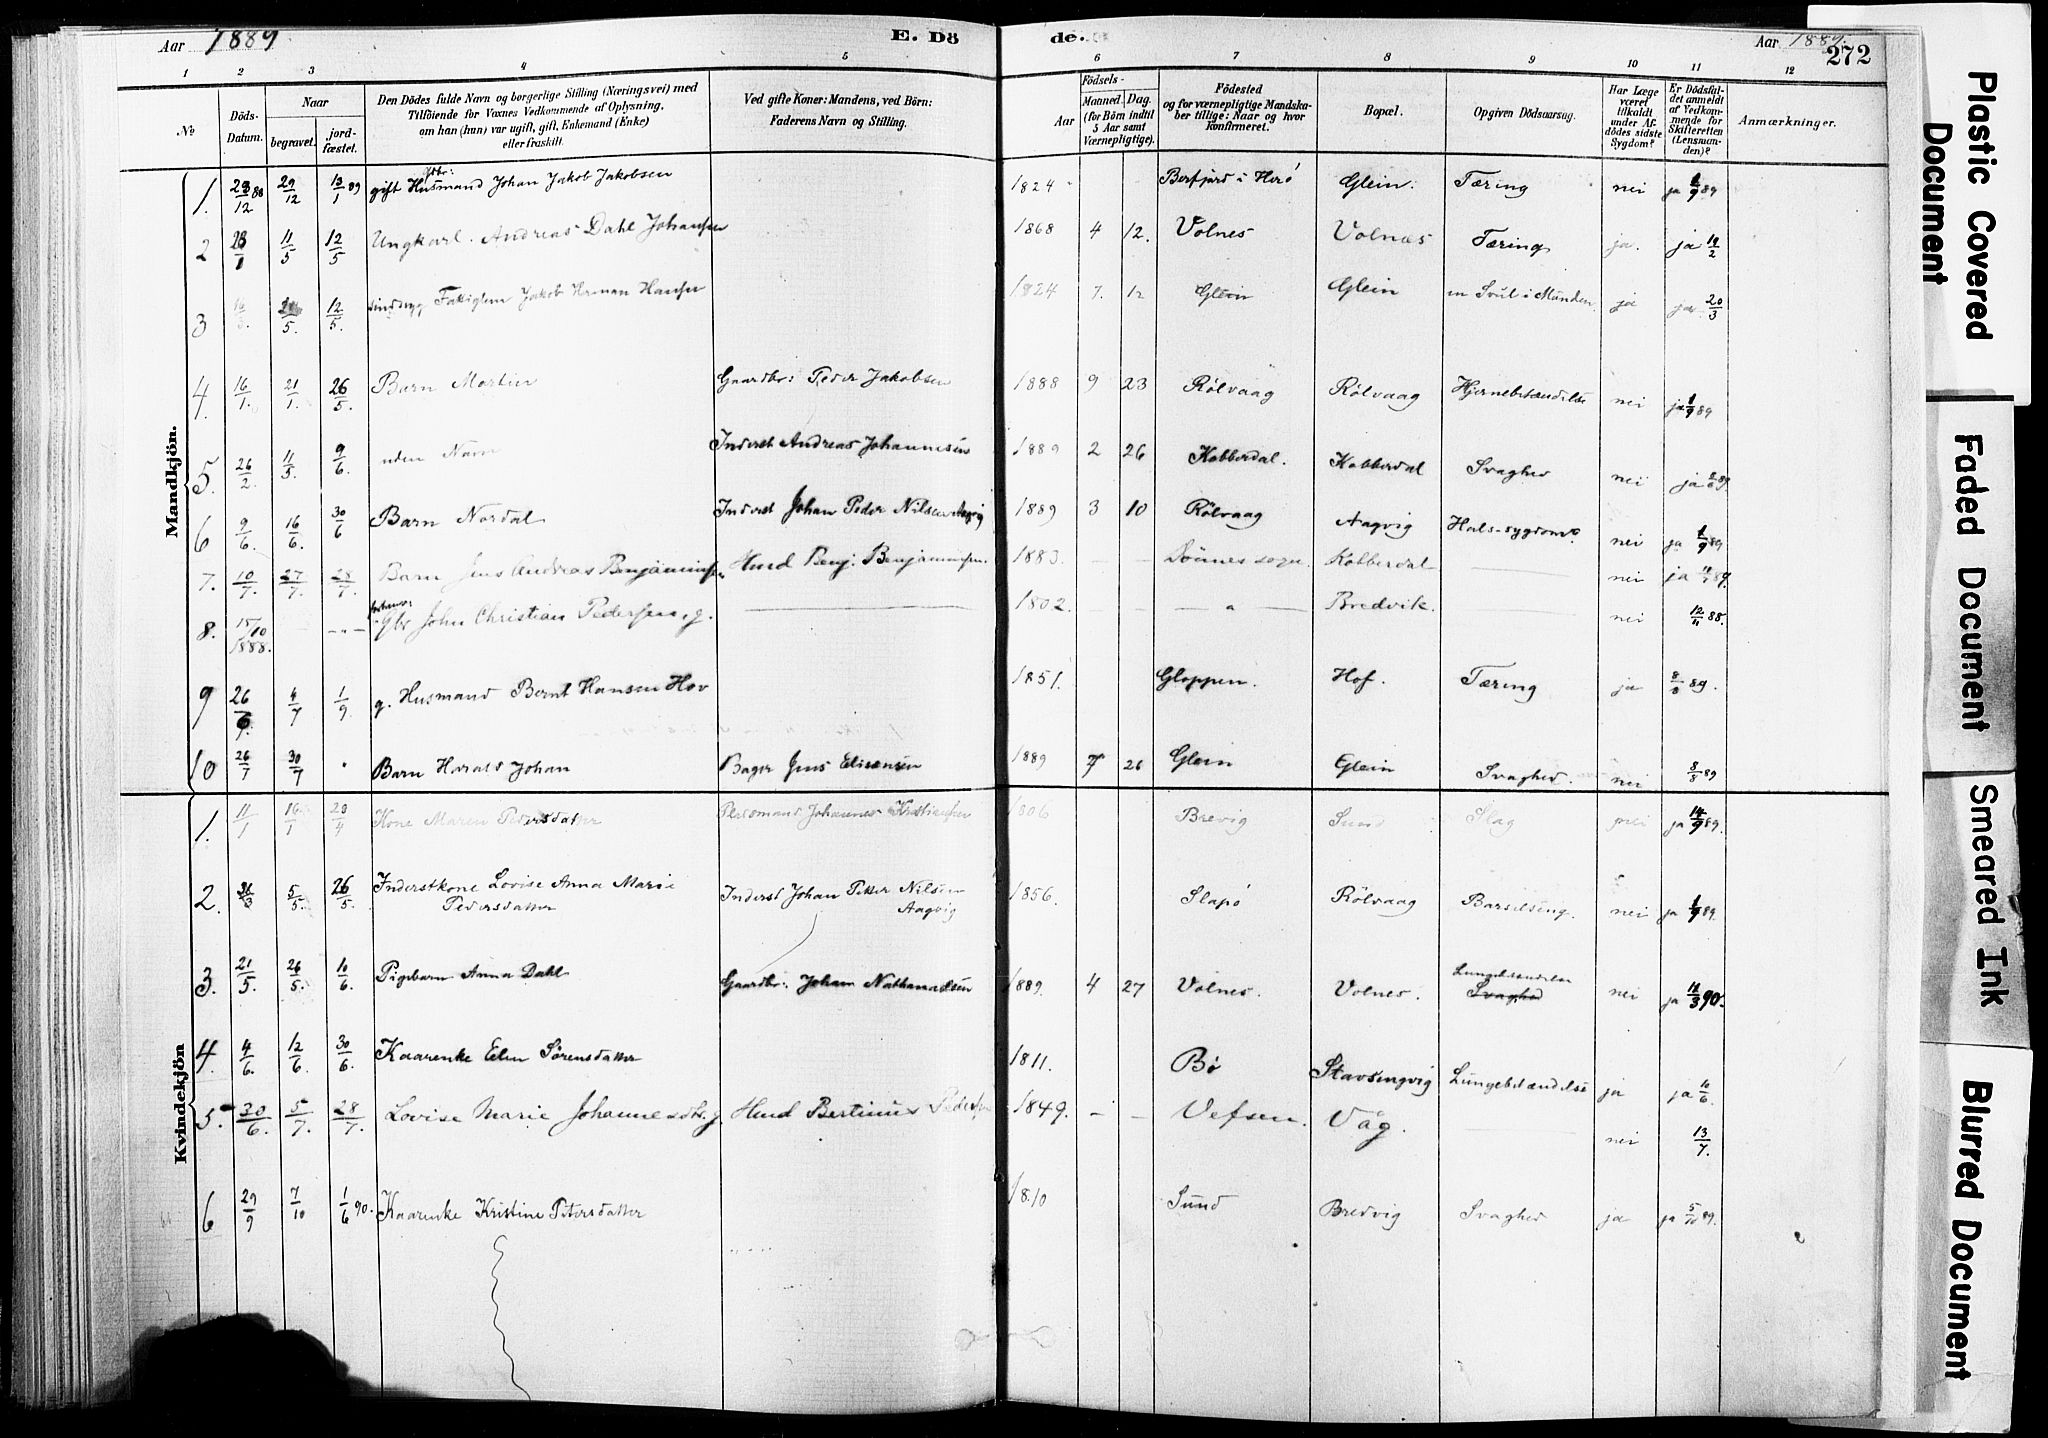 Aar 1889
E. Dö
de.
Aar 1889.
272
1 2 3 4 5 6 7 8 9 10 11 12
№
Döds-Datum.
Naar
begravet.
jord-fæstet.
Den Dödes fulde Navn og borgerlige Stilling (Næringsvei) med
Tilföiende for Voxnes Vedkommende af Oplysning,
om han (hun) var ugift, gift, Enkemand (Enke)
eller fraskilt.
Ved gifte Koner: Mandens, ved Börn:
Faderens Navn og Stilling.
Födsels-
Aar
Maaned. Dag.
(for Börn indtil
5 Aar samt
Værnepligtige).
Födested
og for værnepligtige Mandska-
ber tillige: Naar og hvor
konfirmeret.
Bopæl.
Opgiven Dödsaarsag.
Har Læge
været
tilkaldt
under Af-
dödes sidste
Sygdom?
Er Dödsfal-
det anmeldt
af Vedkom-
mende for
Skifteretten
(Lensman-
den)?
Anmærkninger.
Mandkjön.
1. 29/12 13/1 89 gift Husmand Johan Jakob Jakobsen 1824 Glein. Tæring nei ja 89
2 11/5 12/5 Ungkarl. Andreas Dahl Johansen 1868 4 12. Volnes Volnæs Tæring ja. ja
3 12/5. Jakob Herman Hansen 1824 7. 12 Glein Glein ja ja 20/3
4. 16/1. 21/1. 26/5. Barn Martin Gaardbr: Peder Jakobsen 1888 9 23 Rølvaag Rølvaag Hjernebetændelse nei ja 89
5. 26/2. 11/5. 9/6. uden Navn Inderst Andreas Johannesen 1889 2 26 Kobberdal. Kobberdal Svaghed nei ja 89
6 9/6. 16/6. 30/6 Barn Nordal Inderst Johan Peder Nilsen Aagvig 1889 3 10 Rølvaag Aagvig Hals-sygdom nei ja 89
7. 10/7. 27/7. 28/7. Barn Jens Andreas Benjaminsen Hmd Benj. Benjaminsen. 1883. — — Dönnes sogn. Kobberdal nei ja 89.
8. 15/10 1888. — -„- Gbr John Christian Pedersen, g. 1802. — „ — Bredvik. nei 12/11 88.
9 26/6. 4/7 1/9 g. Husmand Bernt Hansen Hov 1851. Gloppen. Hof. Tæring ja 89.
10 26/7 30/7 Barn Harald Johan Bager Jens Elisensen 1889 7 26 Glein Glein Svaghed. nei 8/8 89
Kvindekjön
1. 11/1 16/1 29/4 Kone Maren Pedersdatter Johannes Kristiansen 1806 Brevig Sund Slag nei ja 89.
2. 5/5. 26/5. Inderstkone Lovise Anna Marie
Pedersdatter
Inderst Johan Petter Nilsen
Aagvig
1856. Slapø Rølvaag Barselseng. nei ja 89.
3. 21/5. 26/5. 10/6. Pigebarn Anna Dahl Gaardbr: Johan Nathanaelsen 1889. 4 27 Volnes. Volnes. Lungebetændelse
Svaghed
nei ja 90.
4. 4/6. 12/6. 30/6. Kaarenke Elen Sørensdatter 1811. Bø Stavsengvig Lungebetændelse ja ja 10/6.
5. 30/6. 5/7. 28/7. Lovise Marie Johannesdtr. g. Hmd Bertinus Pedersen 1849. — — Vefsen. Våg. nei 13/7.
6 29/9 7/10 1/6 90. Kaarenke Kristine Petersdatter 1810 Sund Bredvig Svaghed ja ja 5/10 89.
Plastic Covered
Document
Faded Document
Smeared Ink
Blurred Document